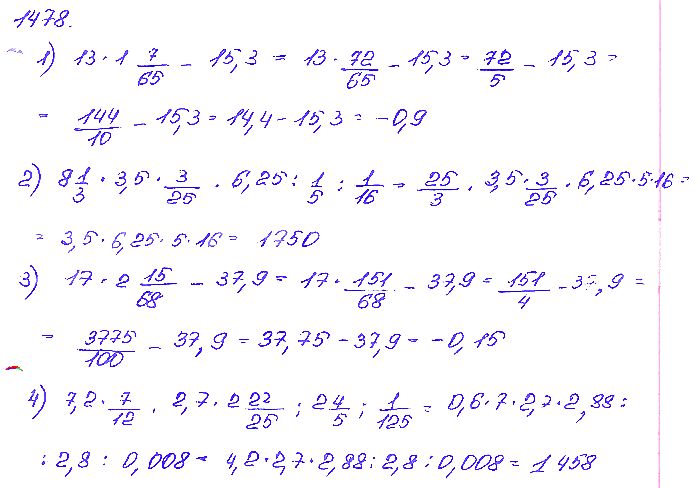 1478.
1) 13 · 1 7/65 − 15,3 = 13 · 72/65 − 15,3 = 72/5 − 15,3 =
= 144/10 − 15,3 = 14,4 − 15,3 = −0,9
2) 8 1/3 · 3,5 · 3/25 · 6,25 : 1/5 : 1/16 = 25/3 · 3,5 · 3/25 · 6,25 · 5 · 16 =
= 3,5 · 6,25 · 5 · 16 = 1750
3) 17 · 2 15/68 − 37,9 = 17 · 151/68 − 37,9 = 151/4 − 37,9 =
= 3775/100 − 37,9 = 37,75 − 37,9 = −0,15
4) 7,2 · 7/12 · 2,7 · 2 22/25 : 2 4/5 : 1/125 = 0,6 · 7 · 2,7 · 2,88 :
: 2,8 : 0,008 = 4,2 · 2,7 · 2,88 : 2,8 : 0,008 = 1458